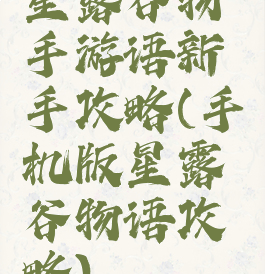 星露谷物
手游语新
手攻略(手
机版星露
谷物语攻
略)